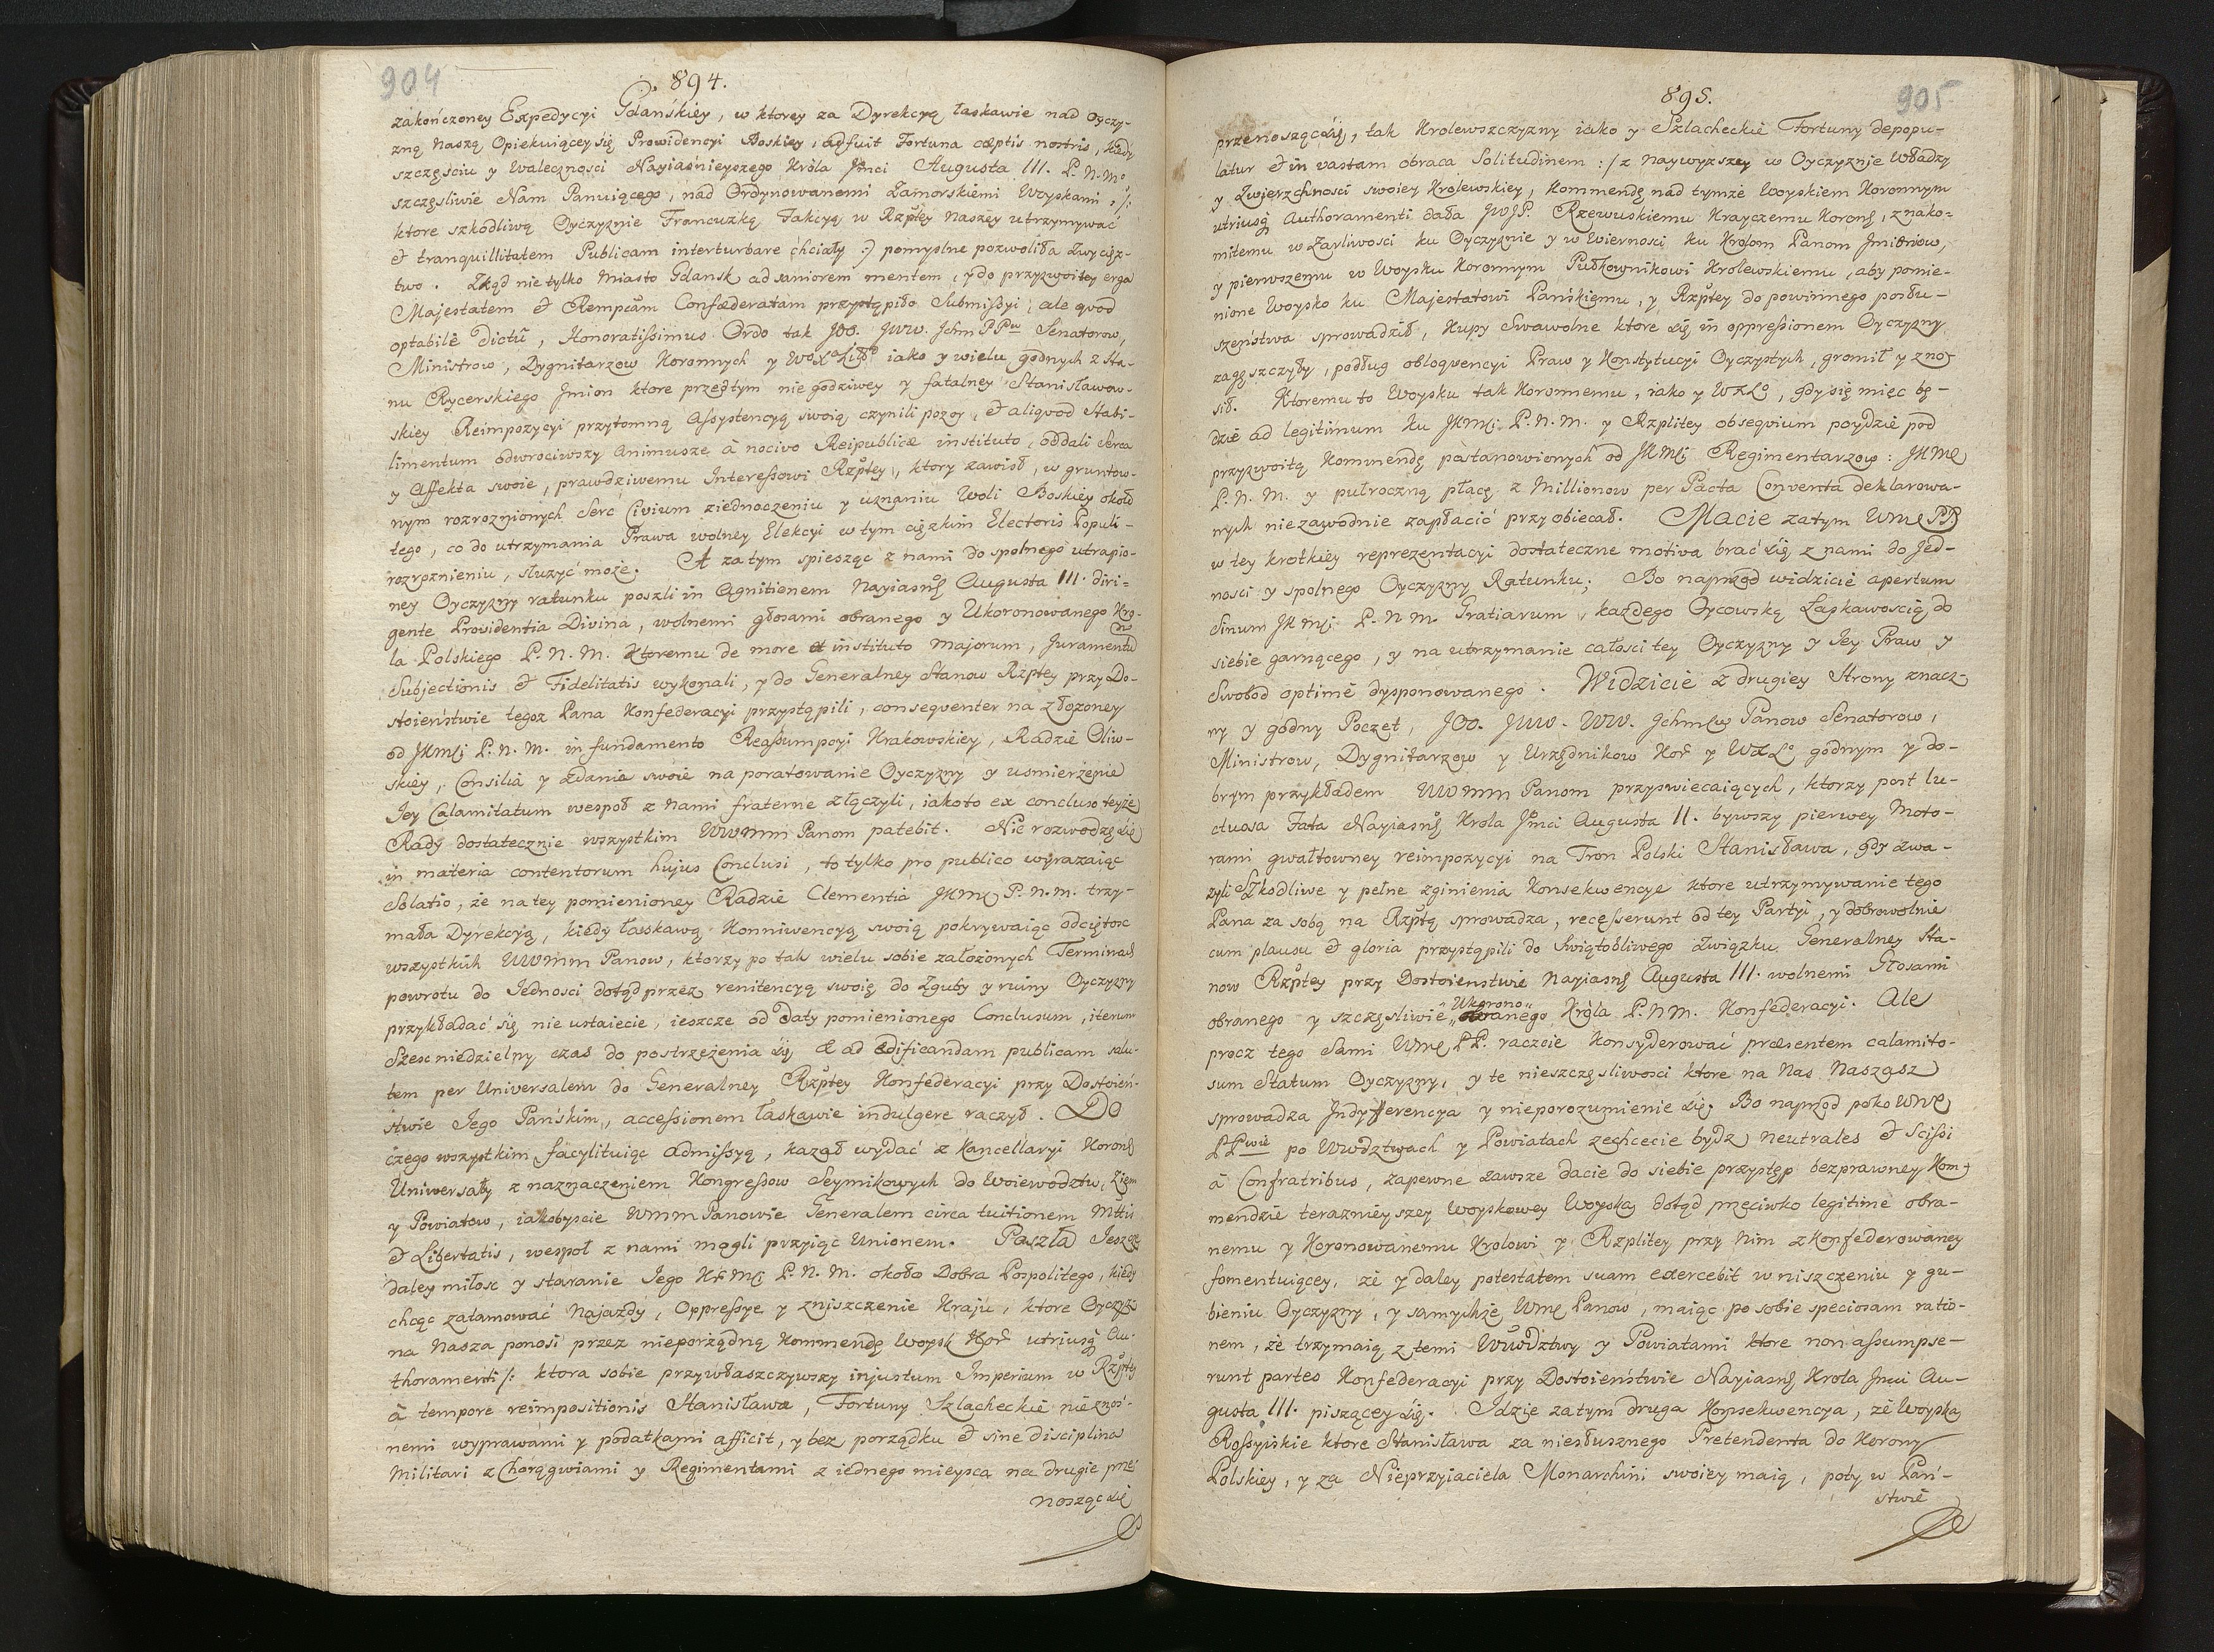 904
894.
zakończoney Expedycyi Gdańskiey, w ktorey za Dyrekcyą łaskawie nad Oyczy-
zną Naszą Opiekuiącey się Prowidencyi Boskiey, adfuit Fortuna cæptis nostris, kiedy
szczęsciu y Walecznosci Nayiaśnieyszego Króla Jmci Augusta III. P. N. M.
szczęsliwie Nam Panuiącego, nad Ordynowanemi Zamorskiemi Woyskami /:
ktore szkodliwą Oyczyznie Francuzką Fakcyą w Rzptey naszey utrzymywać
et tranquillitatem Publicam interturbare chciały :/ pomyslne pozwoliła Zwycięz-
two. Zkąd nie tylko Miasto Gdansk ad saniorem mentem, y do przyzwoitey erga
Majestatem et Rempcam Confæderatam przystąpiło Submissyi, ale qvod
optabile dictu, Honoratissimus Ordo tak JOO. JWW. Jchm PPw Senatorow,
Ministrow, Dygnitarzow Koronnych y WoXaLitto iako y wielu godnych z Sta-
nu Rycerskiego Jmion ktore przedtym niegodziwey y fatalney Stanisławow-
skiey Reimpozycyi przytomną Assystencyą swoią czynili pozor, et aliqvod Stabi-
limentum odwrociwszy Animusze à nocivo Reipublicæ instituto, oddali Serca
y Affekta swoie, prawdziwemu Interessowi Rzptey, ktory zawisł, w gruntow-
nym rozroznionych Serc Civium ziednoczeniu y uznaniu Woli Boskiey około
tego, co do utrzymania Prawa wolney Elekcyi w tym cięzkim Electoris Populi-
rozroznieniu, słuzyć może. A zatym spiesząc z nami do spolnego utrapio-
ney Oyczyzny ratunku poszli in Agnitionem Nayiasns Augusta III. diri-
gente Providentia Divina, wolnemi głosami obranego y Ukoronowanego Kro-
la Polskiego P. N. M. Ktoremu de more et instituto Majorum, Juramentum
Subjectionis et Fidelitatis wykonali, y do Generalney Stanow Rzptey przy Do-
stoieństwie tegoz Pana Konfederacyi przystąpili, conseqventer na złozoney
od JKMci P. N. M. in fundamento Reassumpcyi Krakowskiey, Radzie Oliw-
skiey, Consilia y zdania swoie na poratowanie Oyczyzny y usmierzenie
Iey Calamitatum wespoł z nami fraterne złączyli, iakoto ex concluso teyże
Rady dostatecznie wszystkim WWMM Panom patebit. Nie rozwodzę się
in materia contentorum hujus Conclusi, to tylko pro publico wyrazaiąc
Solatio, że na tey pomienioney Radzie Clementia JKMci P. N. M. trzy-
mała Dyrekcyą, kiedy łaskawą Konniwencyą swoią pokrywaiąc odciętose
wszystkich WWMM Panow, ktorzy po tak wielu sobie założonych Terminach
powrotu do Iednosci dotąd przez renitencyą swoię do Zguby y ruiny Oyczyzny
przykładać się nie ustaiecie, ieszcze od daty pomienionego Conclusum, iterum
Szesc niedzielny czas do postrzeżenia się et ad ædificandam publicam salu-
tem per Universalem do Generalney Rzptey Konfederacyi przy Dostoień-
stwie Iego Pańskim, accessionem łaskawie indulgere raczył. Do
czego wszystkim facylituiąc admissyą, kazał wydać z Kancellaryi Korons
Uniwersały z naznaczeniem Kongressow Seymikowych do Woiewodztw, Ziem
y Powiatow, iakobyscie WMM Panowie Generalem circa tuitionem Mttis
et Libertatis, wespoł z nami mogli przyiąc Unionem. Paszła Ieszcze
daley miłosc y staranie Iego KrMci P. N. M. około Dobra Pospolitego, kiedy
chcąc zatamować Najazdy, Oppressye y zniszczenie Kraju, ktore Oyczyz-
na Nasza ponosi przez nieporządną Kommendę Woysk Kor utriusq Au-
thoramenti /: ktora sobie przywłaszczywszy injustum Imperium w Rzptey
à tempore reimpositionis Stanisława, Fortuny Szlacheckie nieznoś-
nemi wyprawami y podatkami afficit, y bez porządku et sine disciplina
Militari z Chorągwiami y Regimentami z iednego mieysca na drugie prze
nosząc się
905
895.
przenosząc się, tak Krolewszczyzny iako y Szlacheckie Fortuny depopu-
latur et in vastam obraca Solitudinem :/ z naywyzszey w Oyczyznie Władzy
y Zwierzchnosci swoiey Krolewskiey, Kommendę nad tymże Woyskiem Koronnym
utriusq Authoramenti dała JWJP. Rzewuskiemu Krayczemu Korons, znako-
mitemu w Zarliwosci ku Oyczyznie y w Wiernosci ku Krolom Panom Jmieniow,
y pierwszemu w Woysku Koronnym Pułkownikowi Krolewskiemu, aby pomie-
nione Woysko ku Majestatowi Pańskiemu, y Rzptey do powinnego posłu-
szeństwa sprowadził, Kupy Swawolne ktore się in oppressionem Oyczyzny
zagęszczyły, podług obloqvencyi Praw y Konstytucyi Oyczystych, gromił y zno-
sił. Ktoremu to Woysku tak Koronnemu, iako y WXLo, gdy się mięc bę-
dzie ad legitimum ku JKMci P. N. M. y Rzplitey obseqvium poydzie pod
przyzwoitą Kommendę postanowionych od JKMci Regimentarzow: JKMc
P. N. M. y pułroczną płacę z Millionow per Pacta Conventa deklarowa-
nych niezawodnie zapłacić przyobiecał. Macie zatym WMc PP
w tey krotkiey reprezentacyi dostateczne motiva brać się z nami do Jed-
nosci y spolnego Oyczyzny Ratunku; Bo naprzod widzicie apertum
Sinum JKMci P. N M. Gratiarum, każdego Oycowską Łaskawoscią do
siebie garnącego, y na utrzymanie całosci tey Oyczyzny y Iey Praw y
Swobod optimè dysponowanego. Widzicie z drugiey Strony znacz-
ny y godny Poczet, JOO. JWW. WW. Jchmciw Panow Senatorow,
Ministrow, Dygnitarzow y Urzędnikow Kor y WXLo godnym y do-
brym przykładem WWMM Panom przyswiecaiących, ktorzy post lu-
ctuosa Fata Nayiasns Krola Jmci Augusta II. bywszy pierwey Moto-
rami gwałtowney reimpozycyi na Tron Polski Stanisława, gdy zwa-
zyli Szkodliwe y pełne zginienia Konsekwencye ktore utrzymywanie tego
Pana za sobą na Rzptą sprowadza, recesserunt od tey Partyi, y dobrowolnie
cum plausu et gloria przystąpili do Swiątobliwego Związku Generalney Sta-
now Rzptey przy Dostoienstwie Nayiasns Augusta III. wolnemi Głosami
obranego y szczęsliwie Ukorono„ „wanego Króla P. N M. Konfederacyi. Ale
procz tego Sami WMc PP. raczcie Konsyderować præsentem calamito-
sum Statum Oyczyzny, y te nieszczęsliwosci ktore na Nas Naszasz
sprowadza Indyfferencya y nieporozumienie się, Bo naprzod poko WMc
PPwie po Wwdztwach y Powiatach zechcecie bydz neutrales et Scissi
à Confratribus, zapewne zawsze dacie do siebie przystęp bezprawney Kom-
mendzie teraznieyszey Woyskowey Woyska dotąd przeciwko legitime obra-
nemu y Koronowanemu Krolowi y Rzplitey przy Nim zkonfederowaney
fomentuiącey, że y daley potestatem suam exercebit w niszczeniu y gu-
bieniu Oyczyzny, y samychże WMc Panow, maiąc po sobie speciosam ratio-
nem, że trzymaią z temi Wwdztwy y Powiatami ktore non assumpse-
runt partes Konfederacyi przy Dostoieństwie Nayiasns Krola Jmci Au-
gusta III. piszącey się. Idzie zatym druga Konsekwencya, że Woyska
Rossyiskie ktore Stanisława za niesłusznego Pretendenta do Korony
Polskiey, y za Nieprzyiaciela Monarchini swoiey maią, poty w Pań-
stwie